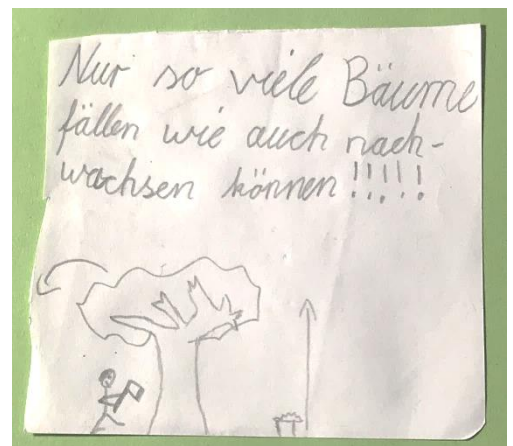 Nur so viele Bäume
fällen wie auch nach-
wachsen können!!!!!